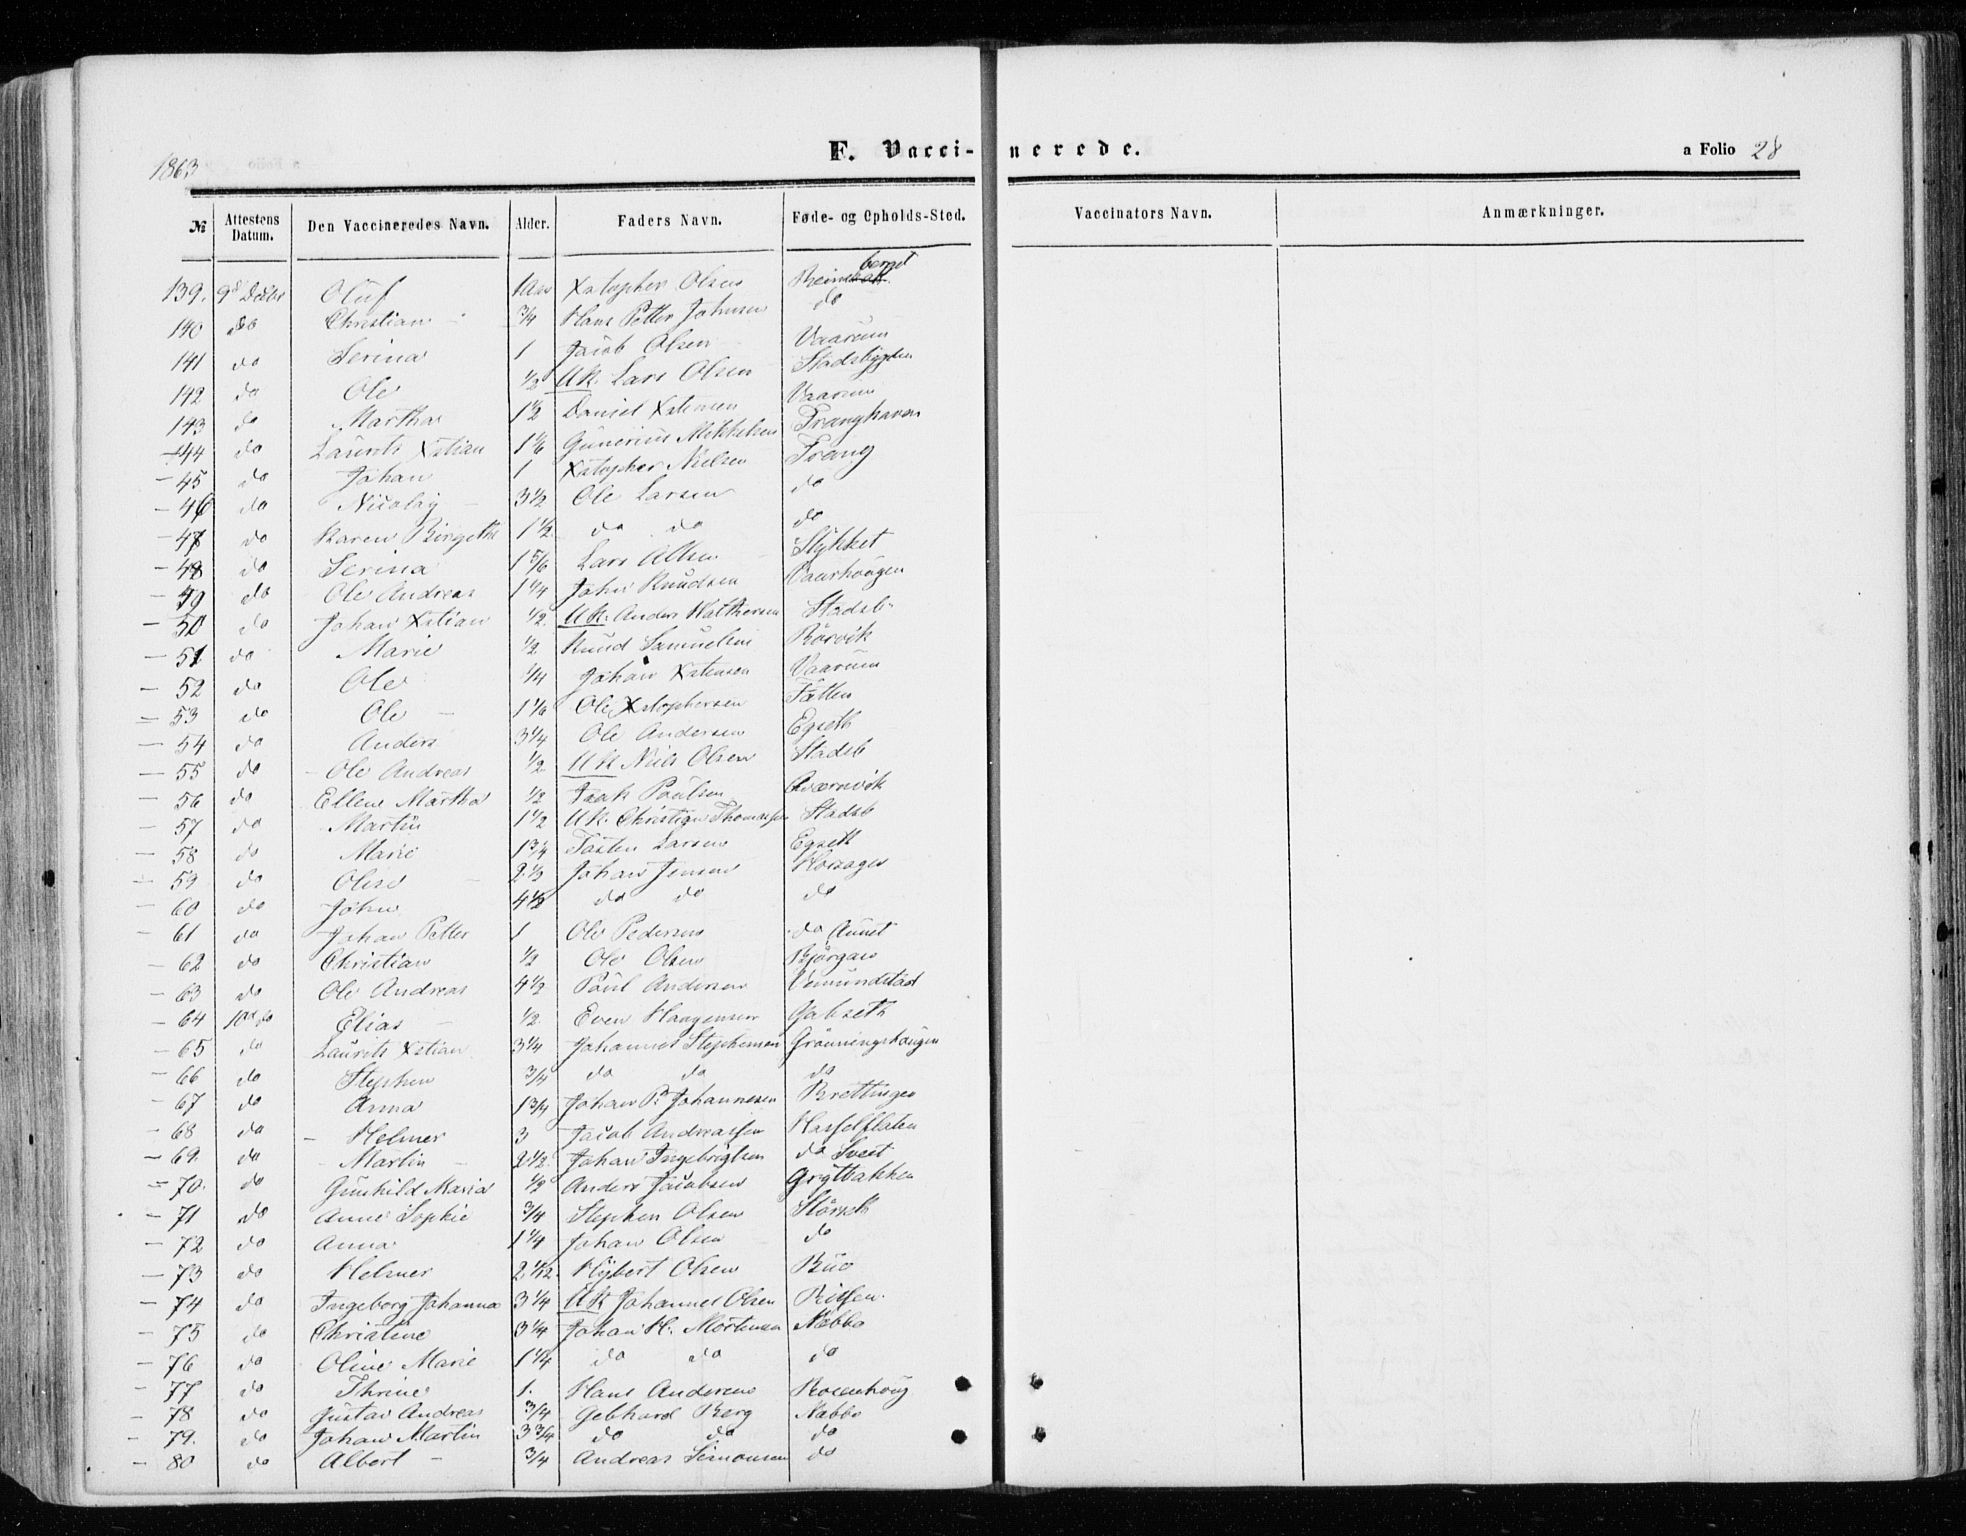 1863
F. Vacci-nerede.
a Folio 28
№ Attestens Datum. Den Vaccineredes Navn. Alder. Faders Navn. Føde- og Opholds-Sted. Vaccinators Navn. Anmærkninger.
139. 9d Decbr Oluf 1 Xstopher Olsen berget
140 do Christian - 3/4 Hans Petter Johnsen do
141 do Serina 1 Jacob Olsen Vaarum
142 do Ole 1/2 UK. Lars Olsen Stadsbygden
143 do Martha 1 1/2 Daniel Xstensen Vaarum
144 do Laurits Xstian 1 1/6 Gunerius Mikkelsen Pranghaven
- 45 do Johan 1 Xstopher Nielsen Prang
- 46 do Nicolay - 3 1/2 Ole Larsen do
- 47 do Karen Birgethe 1 1/2 do do do
- 48 do Serina 1 5/6 Lars Olsen Stykket
- 49 do Ole Andreas 1 1/4 John Knudsen Vaarhougen
- 50 do Johan Xstian 1/2 UK. Anders Stadsb.
- 51 do Marie 1/2 Knud Samuelsen Rørvik
- 52 do Ole 1/4 Johan Xstensen Vaarum
- 53 do Ole - 1 1/6 Ole Xstophersen Fætten
- 54 do Anders 3 1/4 Ole Andersen Egseth
- 55 do - Ole Andreas 1/2 UK Niels Olsen Stadsb
- 56 do Ellen Martha 1/2 Isak Paulsen Qværnvik
- 57 do Martin 1 1/2 UK. Christian Thomassen Stadsb
- 58 do Marie 1 3/4 Tosten Larsen Egseth
- 59 do Oline - 2 1/3 Johan Jensen
- 60 do John 4 1/2 do do do
- 61 do Johan Petter 1 Ole Pedersen do Aunet
- 62 do Christian 1/2 Ole Olsen Bjørgan
- 63 do Ole Andreas 4 1/2 Paul Andersen Vemundstad
- 64 10d do Elias - 1/2 Even Haagensen Galseth
- 65 do Laurits Xstian 3 1/4 Johannes Stephensen Grønningshougen
- 66 do Stephen 3/4 do do do
- 67 do Anna 1 3/4 Johan P. Johannesen Brettingen
- 68 do - Helmer 3 Jacob Andreassen Hasselflaten
- 69. do - Martin - 2 1/2. Johan Ingebrigtsen do Sveet
- 70. do Gunhild Maria 1/2 Anders Jacobsen Grytbakken
- 71 do Anne Sophie 3/4 Stephen Olsen Størseth
- 72 do Anna 1 1/4 Johan Olsen do
- 73 do Helmer 2 1/12. Hybert Olsen Buo
- 74 do Ingeborg Johanna 3 1/4 UK Johannes Olsen Rissen.
- 75 do Christine 3 1/4 Johan H. Mortensen Næbbo
- 76 do Oline Marie 1 1/4 do do do
- 77 do Thrine 1. Hans Andersen Rosenhoug
- 78 do Gustav Andreas 3/4 Gebhard Berg Næbbo
- 79. do Johan Martin 3 3/4 do do do
- 80 do Albert - 3/4 Andreas Simonsen do